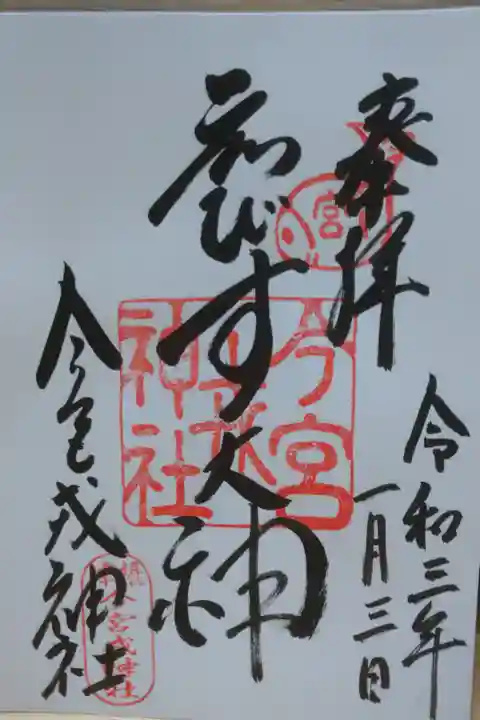 奉拝
令和三年
一月三日
ゑびす大神
今宮戎神社
今宮
戎
神社
今宮戎神社